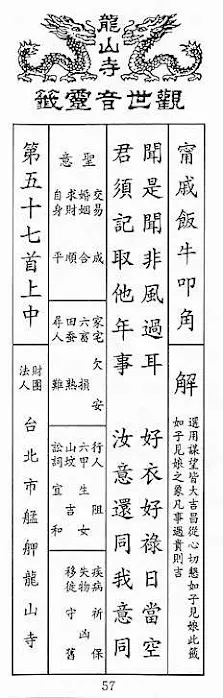 龍山寺
觀世音靈籤
甯戚飯牛叩角
解
選用謀望皆大吉昌從心切懇如子見娘此籤
如子見娘之象凡事遇貴則吉
聞是聞非風過耳 好衣好祿日當空
君須記取他年事 汝意還同我意同
聖意
交易 成
婚姻 合
求財 順
自身 平
家宅 欠安
六畜 損
田蚕 熟
尋人 難
行人 阻
六甲 生女
山坟 吉
訟詞 宜和
疾病 祈保
失物 凶
移徙 守舊
第五十七首上中
財團法人 台北市艋舺龍山寺
57